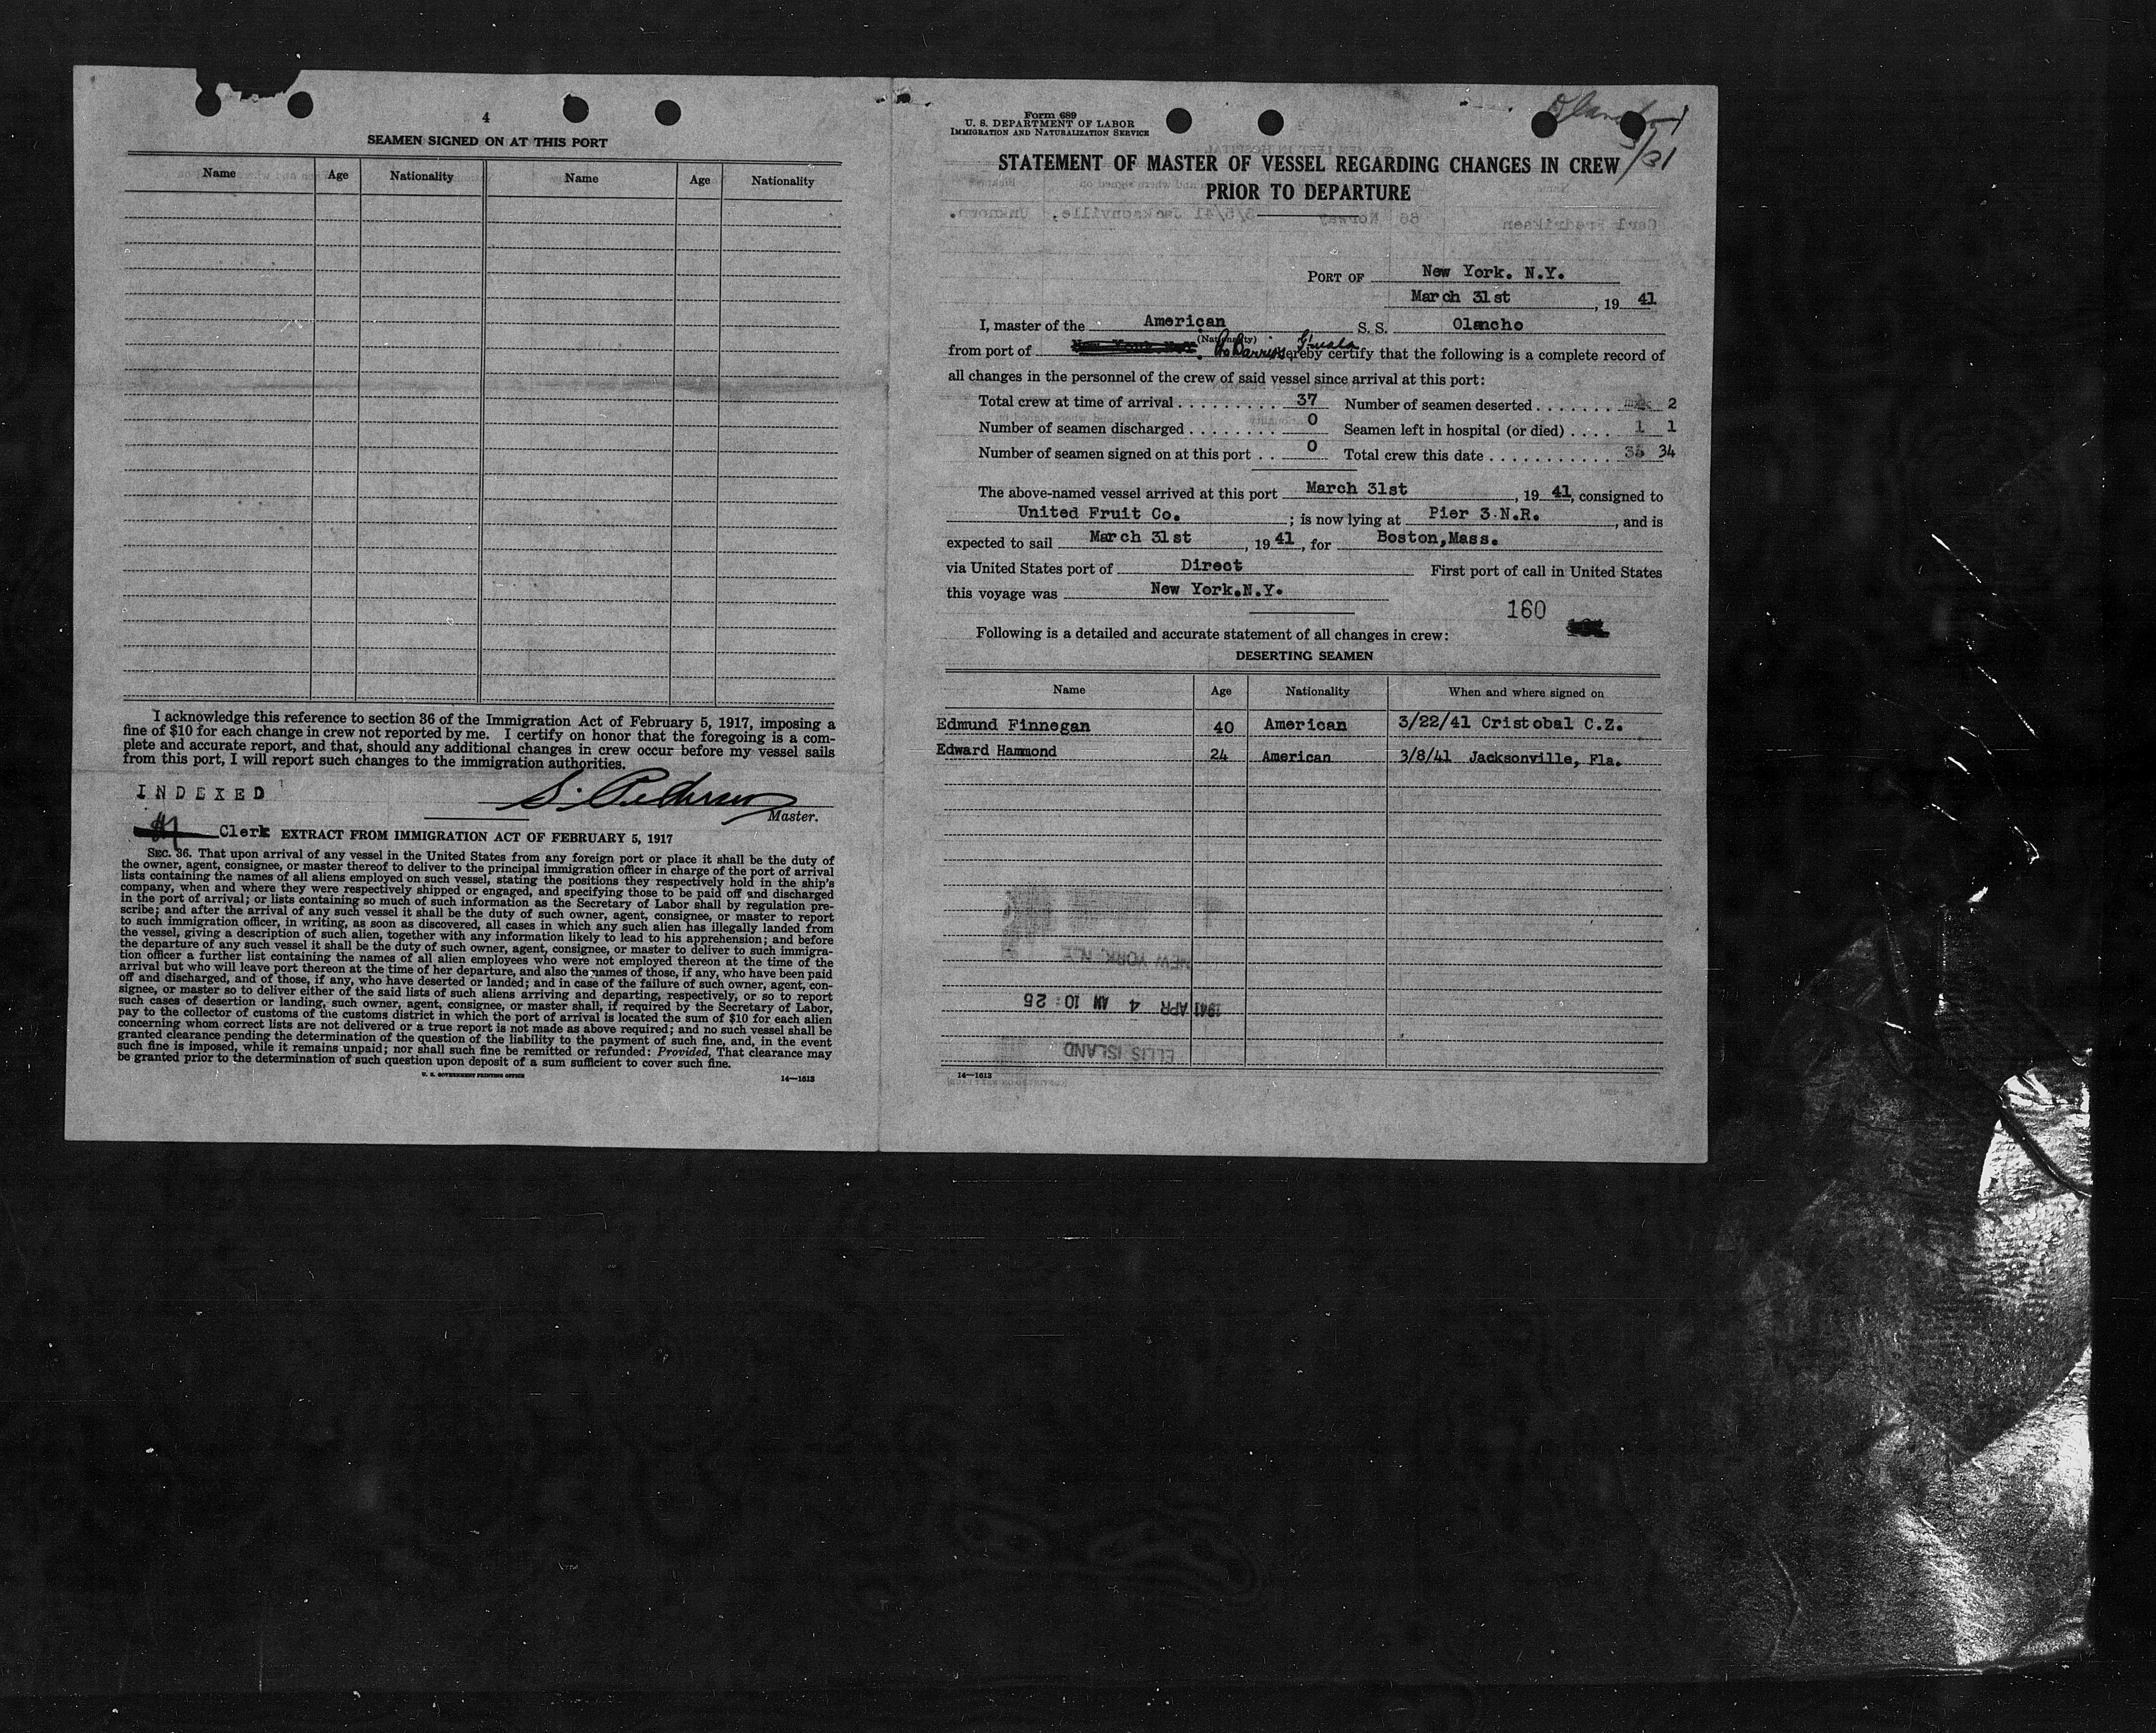 4
SEAMEN SIGNED ON AT THIS PORT
Name Age Nationality Name Age Nationality
I acknowledge this reference to section 36 of the Immigration Act of February 5, 1917, imposing a
fine of $10 for each change in crew not reported by me. I certify on honor that the foregoing is a com-
plete and accurate report, and that, should any additional changes in crew occur before my vessel sails
from this port, I will report such changes to the immigration authorities.
INDEXED
S. Pedersen
Master.
Clerk EXTRACT FROM IMMIGRATION ACT OF FEBRUARY 5, 1917
SEC. 36. That upon arrival of any vessel in the United States from any foreign port or place it shall be the duty of
the owner, agent, consignee, or master thereof to deliver to the principal immigration officer in charge of the port of arrival
lists containing the names of all aliens employed on such vessel, stating the positions they respectively hold in the ship's
company, when and where they were respectively shipped or engaged, and specifying those to be paid off and discharged
in the port of arrival; or lists containing so much of such information as the Secretary of Labor shall by regulation pre-
scribe; and after the arrival of any such vessel it shall be the duty of such owner, agent, consignee, or master to report
to such immigration officer, in writing, as soon as discovered, all cases in which any such alien has illegally landed from
the vessel, giving a description of such alien, together with any information likely to lead to his apprehension; and before
the departure of any such vessel it shall be the duty of such owner, agent, consignee, or master to deliver to such immigra-
tion officer a further list containing the names of all alien employees who were not employed thereon at the time of the
arrival but who will leave port thereon at the time of her departure, and also the names of those, if any, who have been paid
off and discharged, and of those, if any, who have deserted or landed; and in case of the failure of such owner, agent, con-
signee, or master so to deliver either of the said lists of such aliens arriving and departing, respectively, or so to report
such cases of desertion or landing, such owner, agent, consignee, or master shall, if required by the Secretary of Labor,
pay to the collector of customs of the customs district in which the port of arrival is located the sum of $10 for each alien
concerning whom correct lists are not delivered or a true report is not made as above required; and no such vessel shall be
granted clearance pending the determination of the question of the liability to the payment of such fine, and, in the event
such fine is imposed, while it remains unpaid; nor shall such fine be remitted or refunded: Provided, That clearance may
be granted prior to the determination of such question upon deposit of a sum sufficient to cover such fine.
U. S. GOVERNMENT PRINTING OFFICE 14—1613
Form 689
U. S. DEPARTMENT OF LABOR
IMMIGRATION AND NATURALIZATION SERVICE
3/31
STATEMENT OF MASTER OF VESSEL REGARDING CHANGES IN CREW
PRIOR TO DEPARTURE
Carl Fredriksen 36 Norway 3/5/41 Jacksonville, Unknown.
PORT OF New York. N.Y.
March 31st, 19 41
I, master of the American S. S. Olancho
(Nationality)
from port of Pto Barrios, G'mala hereby certify that the following is a complete record of
all changes in the personnel of the crew of said vessel since arrival at this port:
Total crew at time of arrival 37 Number of seamen deserted 2
Number of seamen discharged 0 Seamen left in hospital (or died) 1 1
Number of seamen signed on at this port 0 Total crew this date 34
The above-named vessel arrived at this port March 31st, 19 41, consigned to
United Fruit Co.; is now lying at Pier 3 N.R., and is
expected to sail March 31st, 19 41, for Boston,Mass.
via United States port of Direct First port of call in United States
this voyage was New York.N.Y.
160
Following is a detailed and accurate statement of all changes in crew:
DESERTING SEAMEN
Name Age Nationality When and where signed on
Edmund Finnegan 40 American 3/22/41 Cristobal C.Z.
Edward Hammond 24 American 3/8/41 Jacksonville, Fla.
NEW YORK, N.Y.
1941 APR 4 AM 10:25
ELLIS ISLAND
14—1613